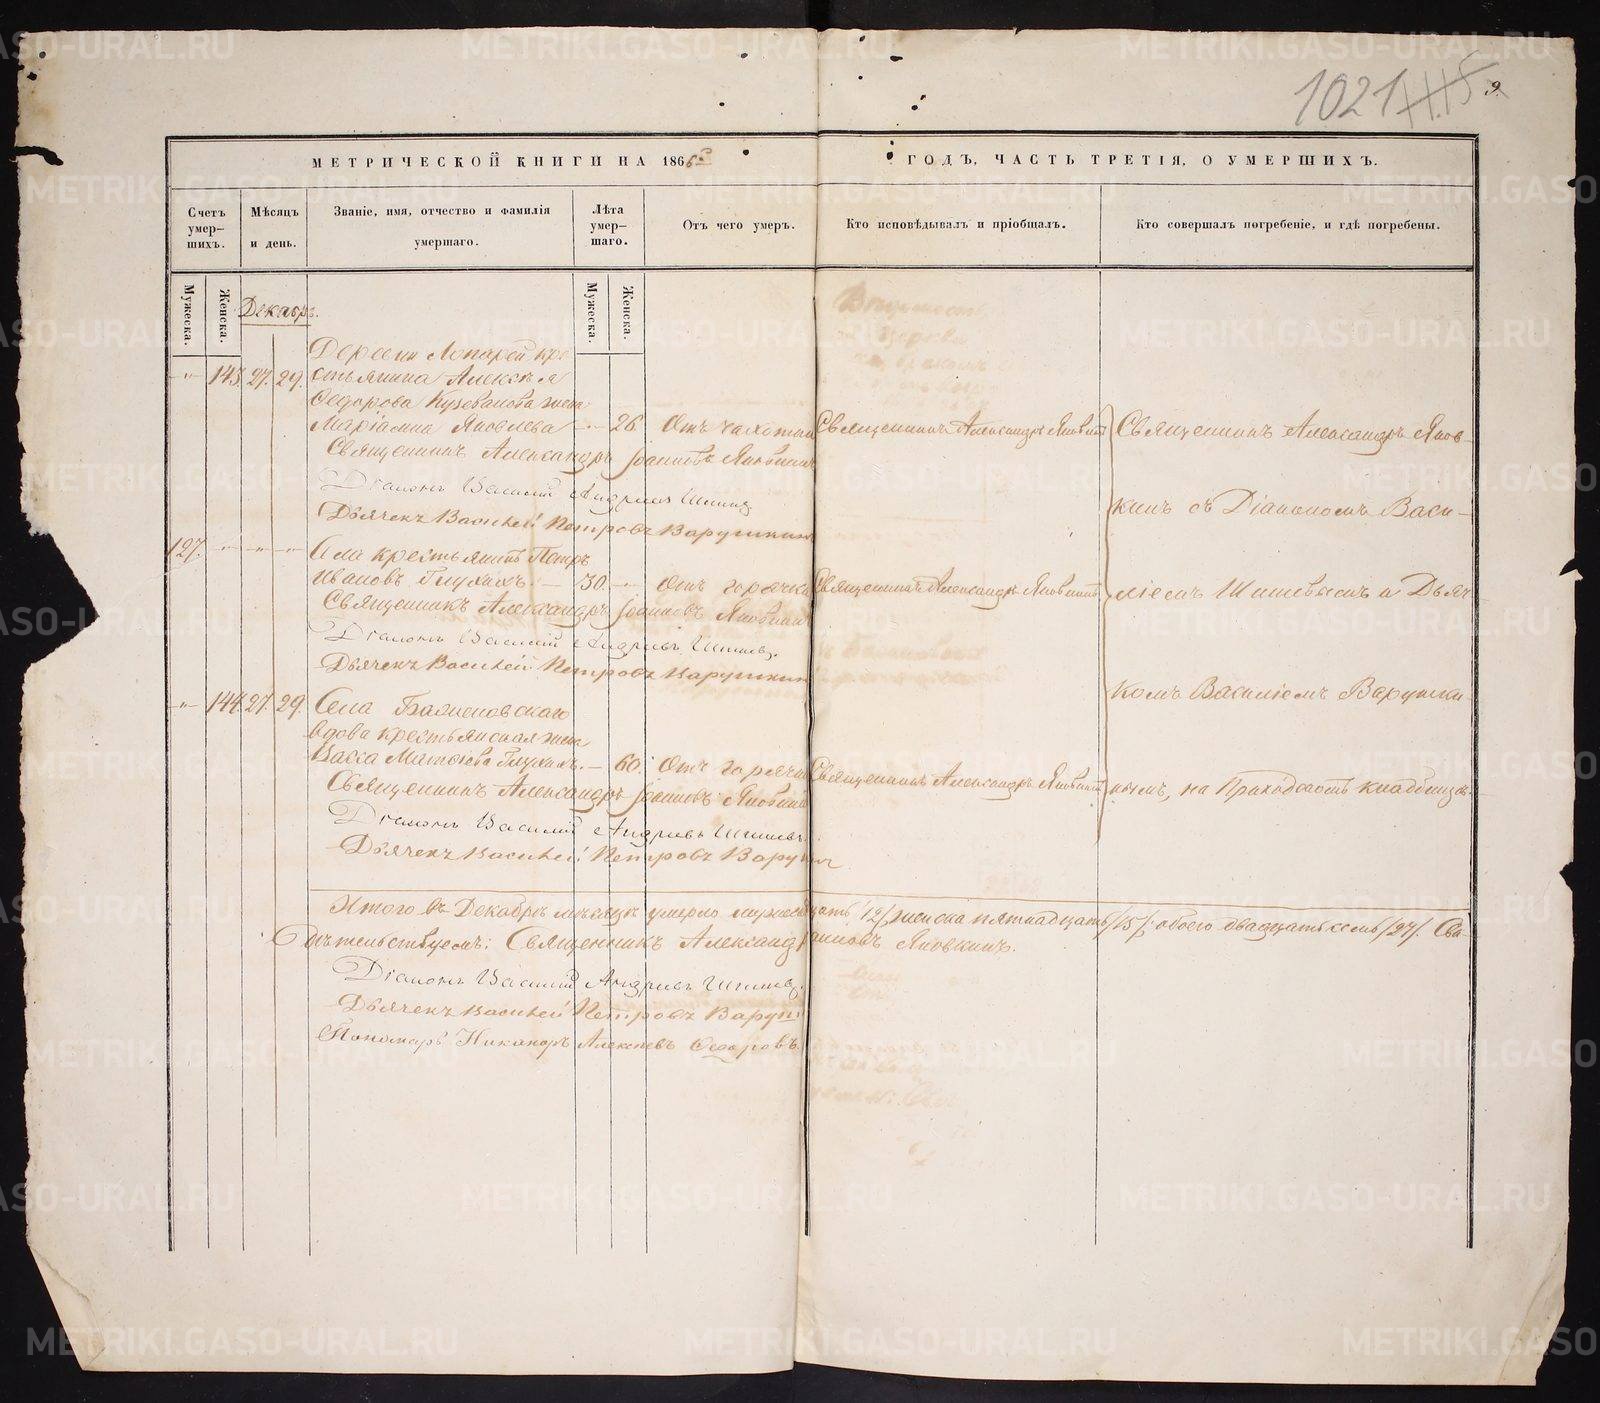 1021
МЕТРИЧЕСКОЙ КНИГИ НА 1866й ГОДЪ, ЧАСТЬ ТРЕТІЯ, О УМЕРШИХЪ.
Счетъ умер—шихъ.
Мѣсяцъ и день.
Званіе, имя, отчество и фамилія умершаго.
Лѣта умер—шаго.
Отъ чего умеръ.
Кто исповѣдывалъ и пріобщалъ.
Кто совершалъ погребеніе, и гдѣ погребены.
Мужеска.
Женска.
Декабрь.
Мужеска.
Женска.
Деревни Лопарей кре
-"- 143. 27. 29. стьянина Алексѣя
Федорова Кузеванова жена
Маріамна Яковлева - 26. Отъ чахотки Священникъ Александръ Яновскій Священникъ Александръ Янов-
Священникъ Александръ Іоанновъ
Діаконъ Василій Андреевъ Шишевъ
кимъ съ Діакономъ Васи-
Дьячекъ Василій Петровъ Варушкинъ
127. -"- -"- -"- Села крестьянинъ Петръ
Ивановъ Глухихъ. - 30. -"- Отъ горячки Священникъ Александръ
ліемъ Шишевымъ и Дьяч
Священникъ Александръ Іоанновъ
Діаконъ Василій Андреевъ Шишевъ.
Дьячекъ Василій Петровъ Варушкинъ
-"- 144. 27. 29. Села
комъ Василіемъ Варушки
вдова крестьянская жена
Васса Матѳіева Глухихъ. - 60. Отъ горячки Священникъ Александръ
нымъ, на Приходскомъ кладбищѣ.
Священникъ Александръ Іоанновъ
Діаконъ Василій Андреевъ Шишевъ.
Дьячекъ Василій Петровъ
Итого въ Декабрѣ мѣсяцѣ умерло мужеска /12/ женска пятнадцать /15/; обоего двадцать семь /27/. Сви-
дѣтельствуемъ: Священникъ Александръ Іоанновъ
Діаконъ Василій Андреевъ Шишевъ.
Дьячекъ Василій Петровъ
Пономарь Никаноръ Алексѣевъ Ѳедоровъ.
METRIKI.GASO-URAL.RU